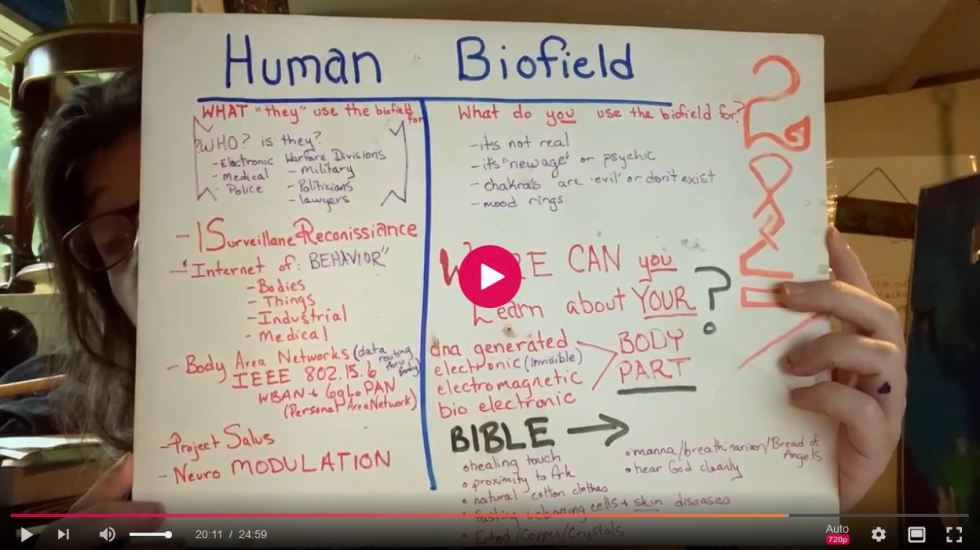 Human Biofield
WHAT "they" use the biofield for
WHO? is they?
- Electronic Warfare Divisions
- Medical
- military
- Police
- Politicians
- lawyers
- ISurveillane Reconissiance
- "Internet of: BEHAVIOR"
- Bodies
- Things
- Industrial
- Medical
- Body Area Networks (data routing thru body)
IEEE 802.15.6
WBAN + 6gLoPAN
(Personal Area Network)
- Project Salus
- Neuro MODULATION
What do you use the biofield for?
- it's not real
- it's "new age" or psychic
- chakras are 'evil' or don't exist
- mood rings
RE CAN you
Learn about YOUR ?
dna generated
electronic (invisible)
electromagnetic
bio electronic
BODY
PART
BIBLE →
• healing touch
• proximity to Ark
• natural cotton clothes
cells + skin diseases
/Copper/Crystals
• manna/breath in/Bread of Angels
• hear God clearly
20:11 / 24:59
Auto
720p